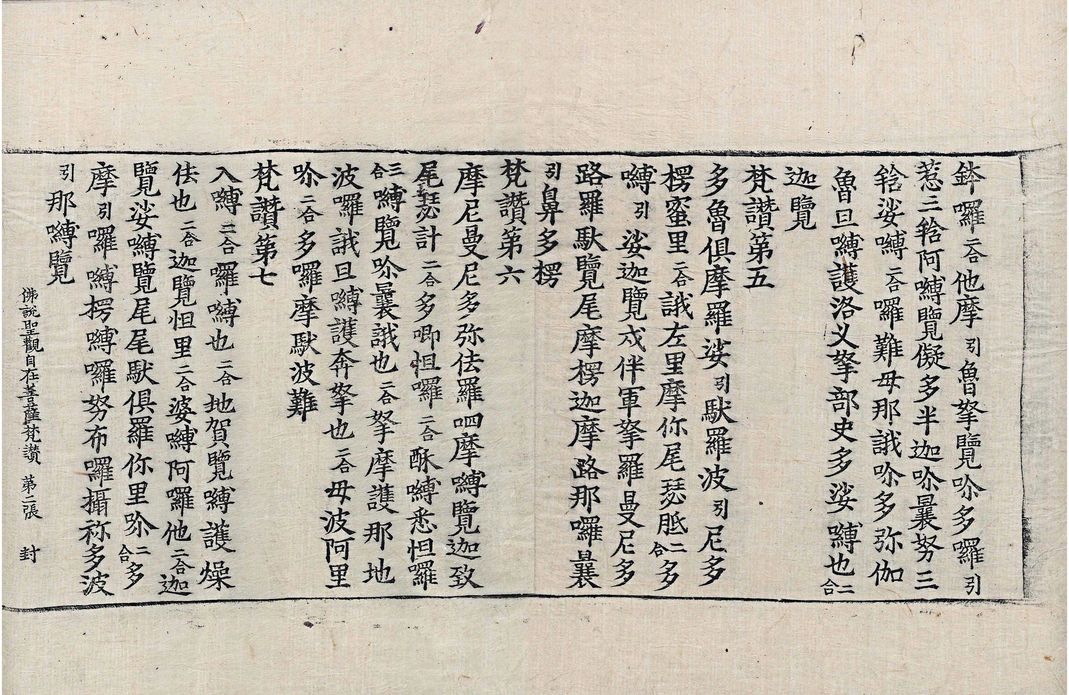 鈐囉二合他摩引魯拏覽吩多囉引
惹三鉿阿嚩覽儗多半迦吩曩努三
鉿娑嚩二合囉難母那誐吩多弥伽
魯旦嚩護洛义拏部史多娑嚩也二合
迦覽
梵讚第五
多魯俱摩羅娑引馱羅波引尼多
楞蜜里二合誐左里摩你尾瑟胝二合多
嚩引娑迦覽戍伴軍拏羅曼尼多
路羅馱覽尾摩楞迦摩路那囉曩
引鼻多楞
梵讚第六
摩尼曼尼多弥佉羅呬摩嚩覽迦致
尾瑟計二合多唧怛囉二合酥嚩悉怛囉
三合嚩覽吩曩誐也二合拏摩護那地
波囉誐旦嚩護奔拏也二合毋波阿里
吩二合多羅摩馱波難
梵讚第七
入嚩二合囉嚩也二合地賀覽嚩護燥
佉也二合迦覽怛里二合婆嚩阿囉他二合迦
覽娑嚩覽尾尾馱俱羅你里吩二合多
摩引囉嚩楞嚩囉努布囉攝祢多波
引那嚩覽
佛說聖觀自在菩薩梵讚 第二張 封